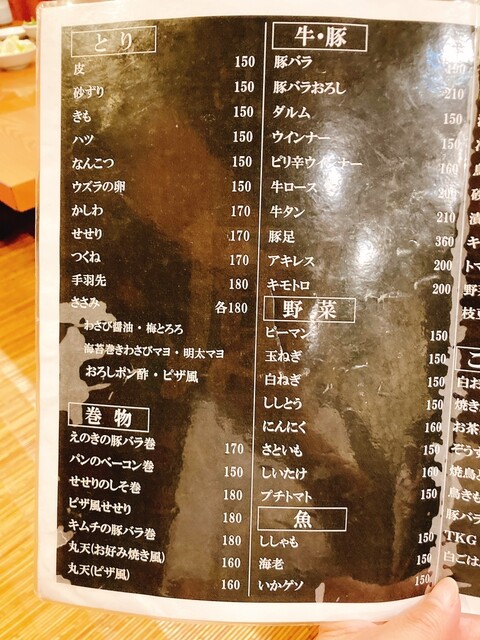 とり
皮 150
砂ずり 150
きも 150
ハツ 150
なんこつ 150
ウズラの卵 150
かしわ 170
せせり 170
つくね 170
手羽先 180
ささみ 各180
わさび醤油・梅とろろ
海苔巻きわさびマヨ・明太マヨ
おろしポン酢・ピザ風
巻物
えのきの豚バラ巻 170
パンのベーコン巻 150
せせりのしそ巻 180
ピザ風せせり 180
キムチの豚バラ巻 180
丸天(お好み焼き風) 160
丸天(ピザ風) 160
牛・豚
豚バラ
豚バラおろし 210
ダルム 150
ウインナー 150
ピリ辛ウインナー 160
牛ロース 200
牛タン 210
豚足 360
アキレス 200
キモトロ 200
野菜
ピーマン 150
玉ねぎ 150
白ねぎ 150
ししとう 150
にんにく 160
さといも 150
しいたけ 160
プチトマト 150
魚
ししゃも 150
海老 150
いかゲソ 150
キ
トマ
野菜
枝豆
ご
白お
焼き
お茶
ぞうす
焼鳥
鳥きも
豚バラ
TKG
白ごは